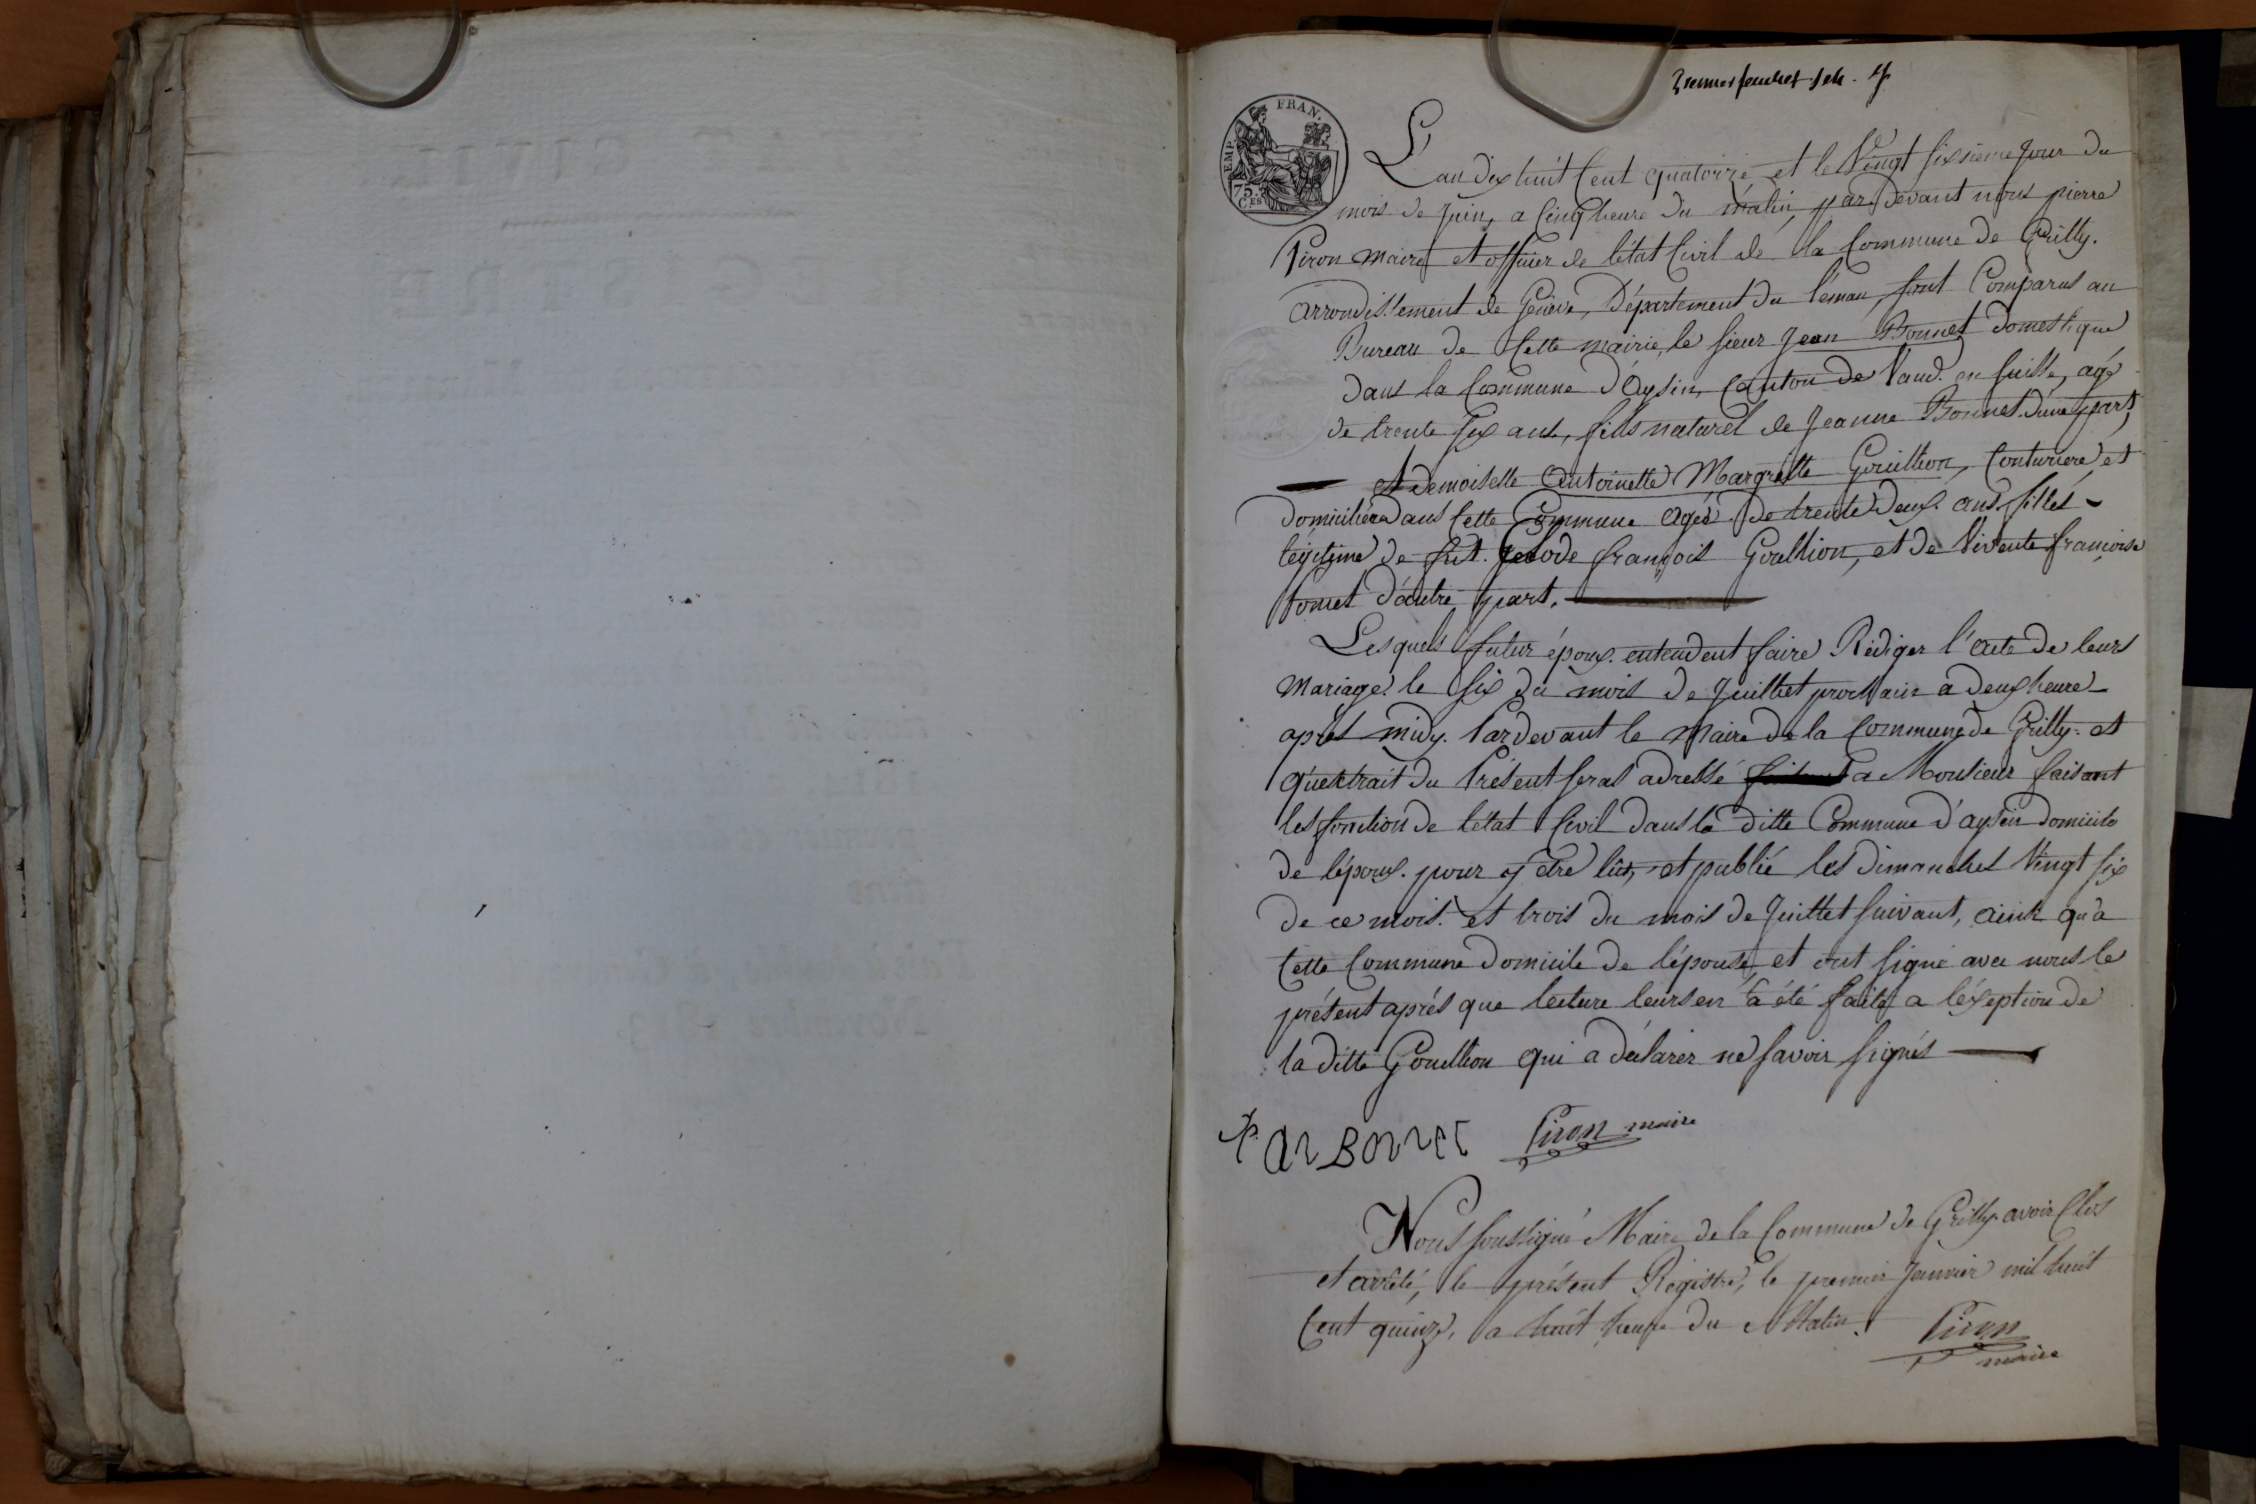 premier feuillet
EMP. FRAN.
75.
C.ES
L'an dix huit Cent quatorze et le Vingt sixsieme Jour du
mois de Juin, a Cinq heure du matin, par devant nous pierre
Piron maire et officier de l'état Civil de la Commune de Grilly.
arrondissement de Genève, Département du Leman, sont Comparus au
Bureau de Cette mairie, le sieur Jean Bonnet domestique
dans la Commune d'Aysin, Canton de Vaud. en suisse, agé
de trente six ans, fils naturel de Jeanne Bonnet d'une part,
et demoiselle Antoinette Margrette Gouillion, Couturiere et
domiciliée dans Cette Commune agée de trente deux. ans filles
légitime de fut. Clode françois Gouillion, et de Vivente françoise
Comet d'autre part.
Les quels futur époux. entendent faire Rédiger l'acte de leurs
Mariage. le six du mois de Juilliet prochain a deux heure
après midy. Pardevant le Maire de la Commune de Grilly. et
qu'extrait du Présent seras adressé a Monsieur faisant
les fonction de l'état Civil dans la ditte Commune d'aysin domicile
de l'époux. pour y être lût, et publié les dimanches Vingt six
de ce mois. et trois du mois de Juillet suivant, ainsi qu'a
Cette Commune domicile de l'épouse, et ont signé avec nous le
présent après que lecture leurs en a été faite a l'éxseption de
la ditte Gouillion qui a déclarer ne savoir signés
Bonnet Piron maire
Nous soussigné Maire de la Commune de Grilly avoir Clos
et arrêté, le présent Régistre, le premier Janvier mil huit
Cent quinze, a huit heure du Matin. Piron
maire